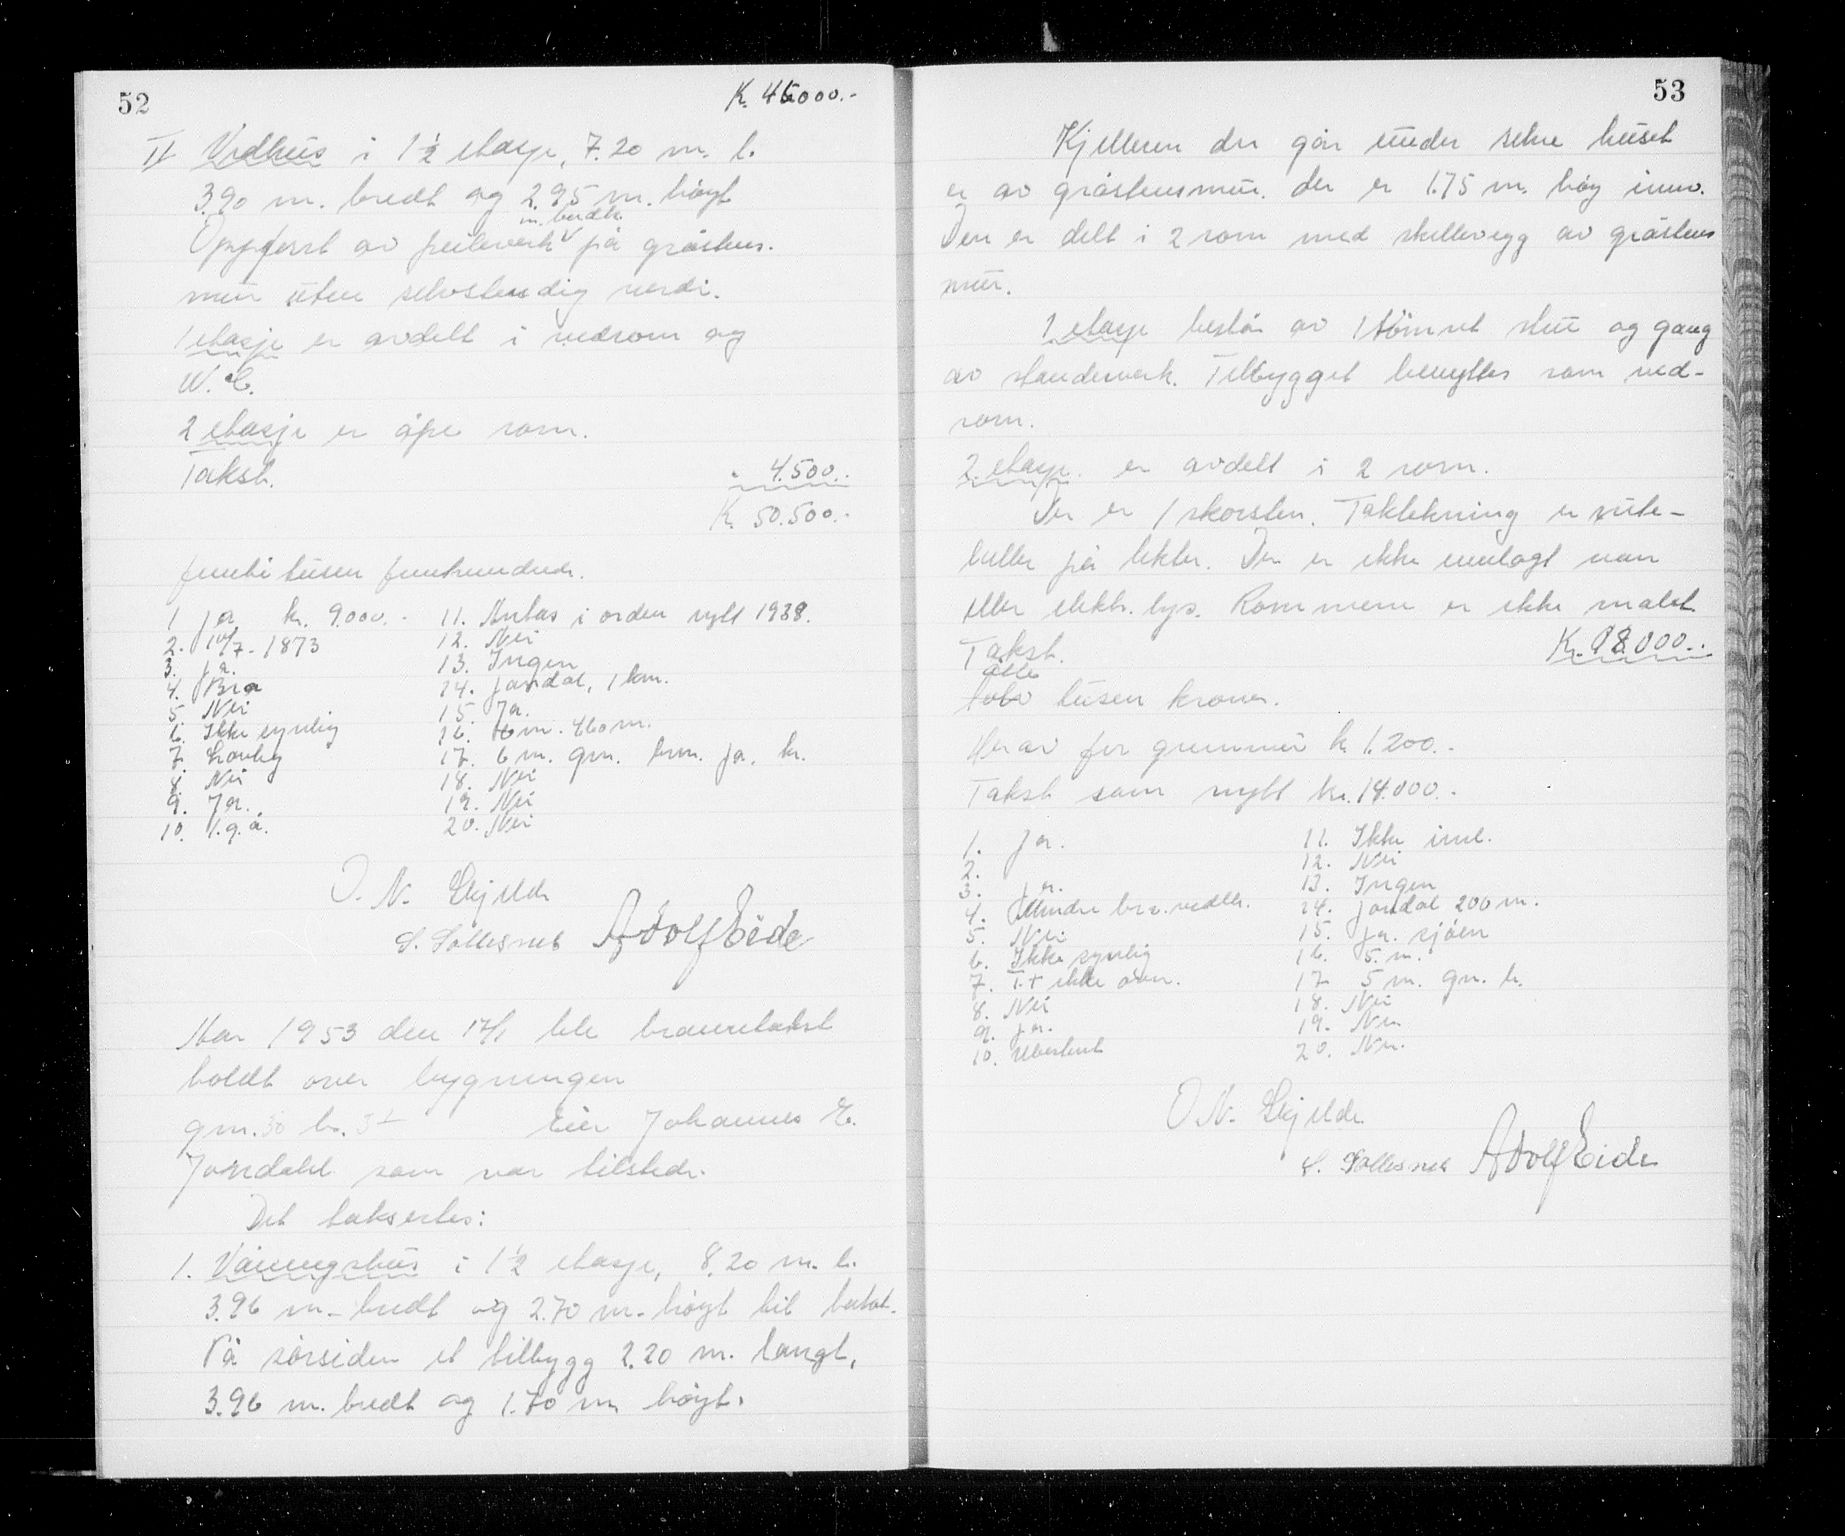 52
K. 46000.-
II Vedhus i 1 1/2 etasje, 7.20 m. l.
3.90 m. bredt og 2.95 m. høgt
m. bordkl.
Oppført av på gråstens.
mur uten selvstendig verdi.
1 etasje er avdelt i vedrom og
W.C.
2 etasje er åpe rom.
Takst. " 4.500.-
K. 50.500.-
femti tusen femhundrede.
1 ja kr. 9.000.-
2. 10/7-1873
3. ja.
4. Bra
5. Nei
6. Ikke synlig
7. Lovlig
8. Nei
9. Ja.
10. I.g.å.
11. Antas i orden nytt 1938.
12. Nei
13. Ingen
14. Jondal, 1 km.
15. Ja.
16. 6 m. 460 m.
17. 6 m. gm. brm. ja. kr.
18. Nei
19. Nei
20. Nei
O. N. Skjelde
S. Sollesnes Adolf Eide
Aar 1953 den 17/1 ble branntakst
holdt over bygningen
gm. 50 br. 31 Eier Johannes E.
Jondahl som var tilstede.
Det taksertes:
1. Våningshus i 1 1/2 etasje, 8.20 m. l.
3.96 m. bredt og 2.70 m. høgt til
På sørsiden et tilbygg 2.20 m. langt,
3.96 m. bredt og 1.70 m høgt.
53
Kjelleren der går under selve huset
er av gråstensmur. der er 1.75 m. høg innv.
Den er delt i 2 rom med skillevegg av gråstens
mur.
1 etasje består av 1 tømret stue og gang
av standerverk. Tilbygget benyttes som ved-
rom.
2. etasje er avdelt i 2 rom.
Der er 1 skorsten. Taktekning er rute-
heller på lekter. Der er ikke innlagt vann
eller elektr. lys. Rommene er ikke malet.
Takst. Kr. 8.000.-
åtte
tusen kroner.
Herav for grunnmur k. 1.200.-
Takst som nytt kr. 14.000.-
1. Ja.
2.
3. ja.
4. Mindre bra. vedlh.
5. Nei
6. Ikke synlig
7. T.t ikke over.
8. Nei
9. ja.
10. Ubestemt
11. Ikke innl.
12. Nei
13. Ingen
14. Jondal 200 m.
15. Ja. sjøen
16. 5. m.
17. 5 m. gm. b.
18. Nei
19. Nei
20. Nei.
O. N. Skjelde
S. Sollesnes Adolf Eide